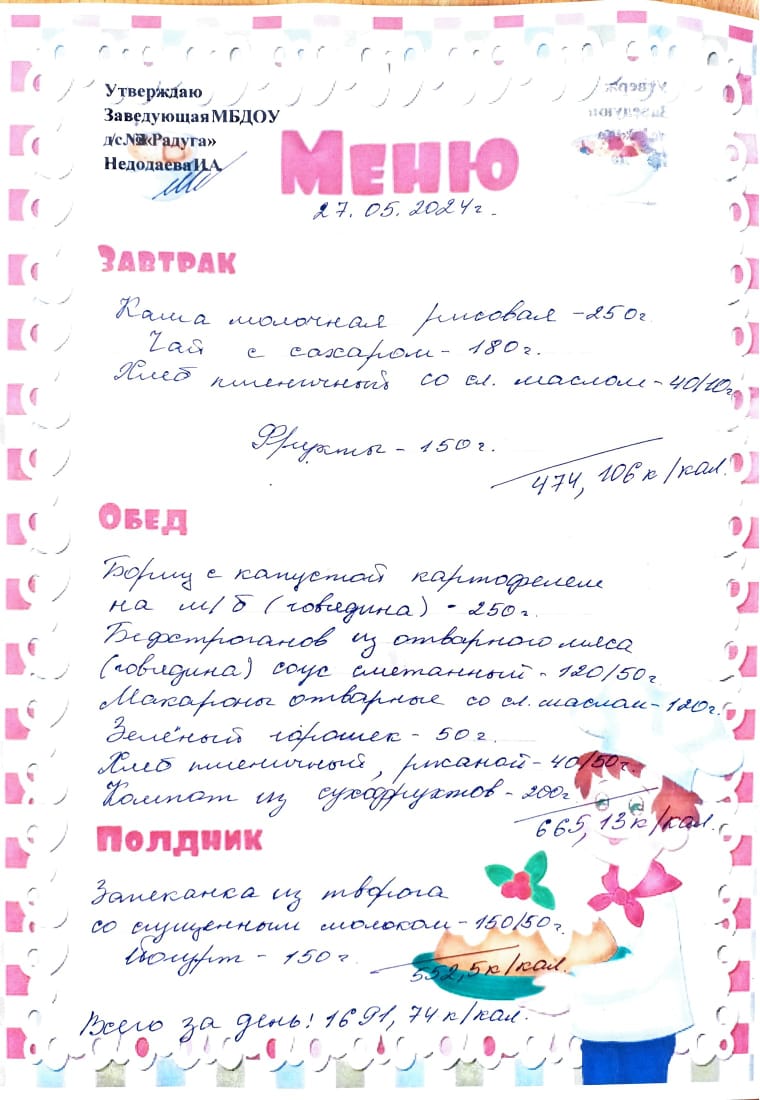 Утверждаю
Заведующая МБДОУ
д/с. «Радуга»
Недодаева И.А.
МЕНЮ
27.05.2024г.
ЗАВТРАК
Каша молочная рисовая - 250г.
Чай с сахаром - 180г.
Хлеб пшеничный со сл. маслом - 40/10г.
Фрукты - 150г.
474,106к/кал.
ОБЕД
Борщ с капустой картофелем
на м/б (говядина) - 250г.
Бефстроганов из отварного мяса
(говядина) соус сметанный - 120/50г.
Макароны отварные со сл. маслом - 120г.
Зелёный горошек - 50г.
Хлеб пшеничный, ржаной - 40/50г.
Компот из сухофруктов - 200г.
665,13к/кал.
ПОЛДНИК
Запеканка из творога
со сгущенным молоком - 150/50г.
Йогурт - 150г.
552,5к/кал.
Всего за день: 1691,74к/кал.